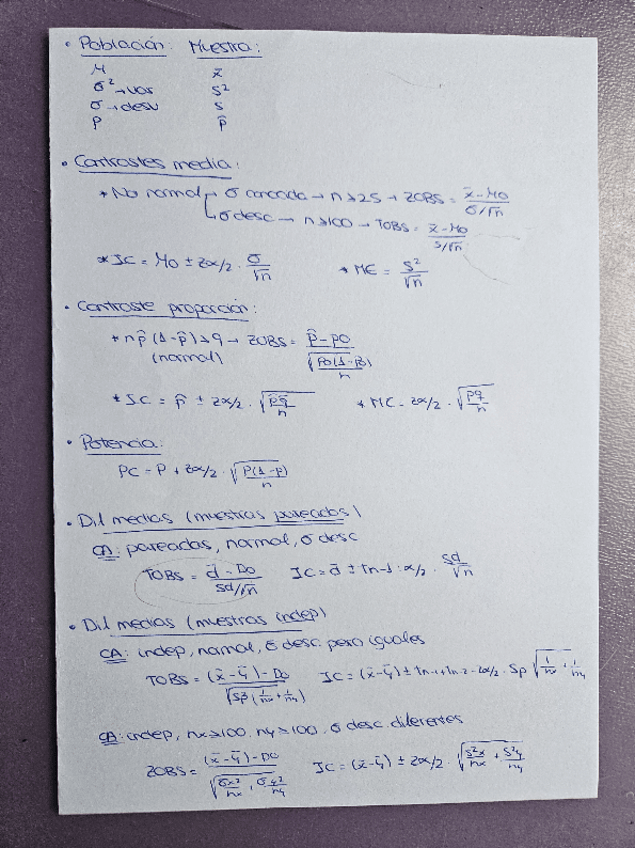 • Población: Muestra:
μ x̄
σ² → var s²
σ → desv s
p p̂
• Contrastes media:
* No normal → σ conocida → n ≥ 25 → ZOBS = (x̄ - μ0) / (σ/√n)
↳ σ desc → n ≥ 100 → TOBS = (x̄ - μ0) / (s/√n)
* IC = μ0 ± zα/2 · σ/√n * ME = s²/√n
• Contraste proporción:
* n p̂ (1 - p̂) > 9 → ZOBS = (p̂ - p0) / √(p0(1 - p0)/n)
(normal)
* IC = p̂ ± zα/2 · √(p̂q̂/n) * ME - zα/2 · √(pq/n)
• Potencia:
PC = P + zα/2 · √(P(1-p)/n)
• Dif medias (muestras pareadas)
CA: pareadas, normal, σ desc
TOBS = (d̄ - D0) / (sd/√n) IC = d̄ ± tn-1 · α/2 · sd/√n
• Dif medias (muestras indep)
CA: indep, normal, σ desc. pero iguales
TOBS = ((x̄ - ȳ) - D0) / √(sp²(1/nx + 1/ny)) IC = (x̄ - ȳ) ± tn-1+tn-2-zα/2 · sp √(1/nx + 1/ny)
CA: indep, nx ≥ 100, ny ≥ 100, σ desc. diferentes
ZOBS = ((x̄ - ȳ) - D0) / √(σx²/nx, σy²/ny) IC = (x̄ - ȳ) ± zα/2 · √(s²x/nx + s²y/ny)